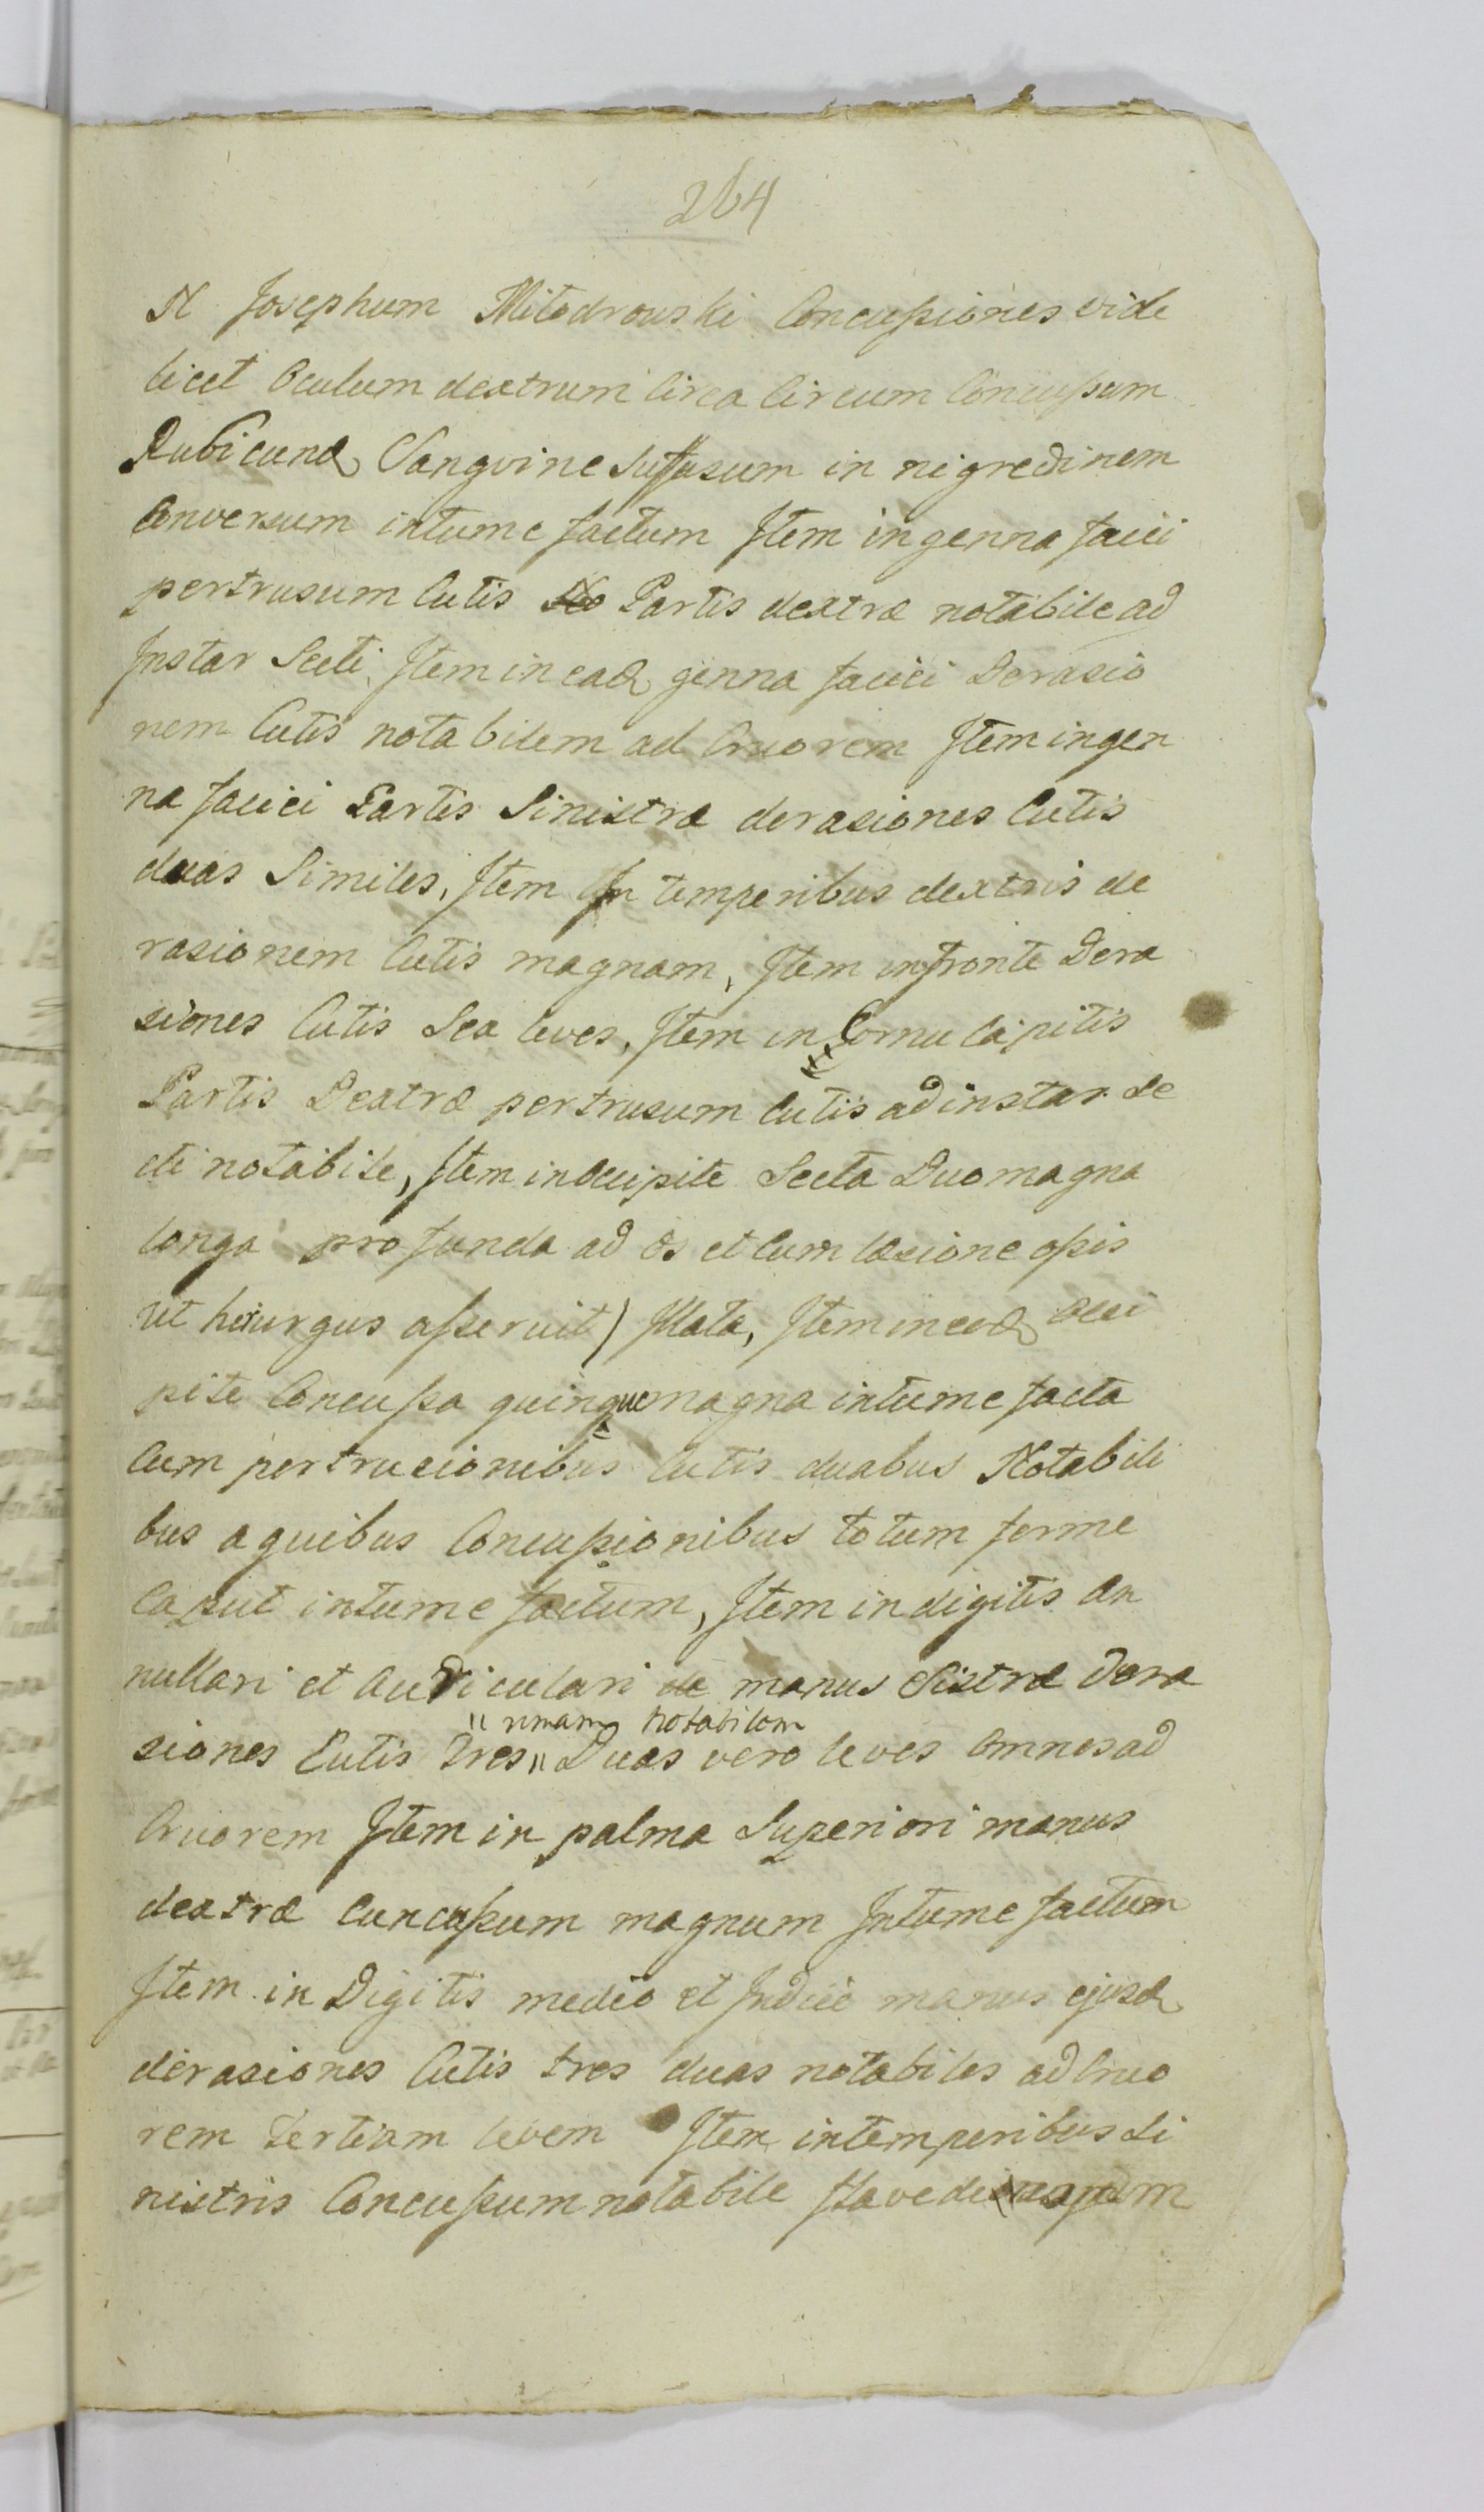 264
N Josephum Mitodrowski Concussiones vide
licet Oculum dextrum Circa Circum Concussum
Rubicund Sangvine Suffusum in nigredinem
Conversum intume factum Item in genna faciei
pertrusum Cutis Partis dextræ notabile ad
Instar Secti, Item in ead genna faciei Derasio
nem Cutis notabilem ad Cruorem Item in gen
na faciei Partis Sinistræ derasiones Cutis
duas Similes, Item In temperibus dextris de
rasionem Cutis magnam, Item in fronte Dera
siones Cutis Sex leves, Item in Cornu Capitis
Partis Dextræ pertrusum Cutis ad instar Se
cti notabile, Item in Occipite Secta Duo magna
longa profunda ad os et Cum læsione ossis
ut hirurgus asseruit) Illata, Item in eod Occi
pite Concussa quinque magna intume facta
Cum pertrucionibus Cutis duabus Notabili
bus a quibus Concussionibus totum ferme
Caput intume factum, Item in digitis An
nullari et Auriculari de manus Sistræ Dera
" unam Notabilem
siones Cutis Tres " Duas vero leves Omnes ad
Cruorem Item in palma Superiori manus
dextræ Cuncussum magnum Intume factum
Item in Digitis medio et Indici manus ejusd
derasiones Cutis tres duas notabiles ad Cruo
rem Tertiam levem Item in temperibus Si
nistris Concussum notabile flavedi